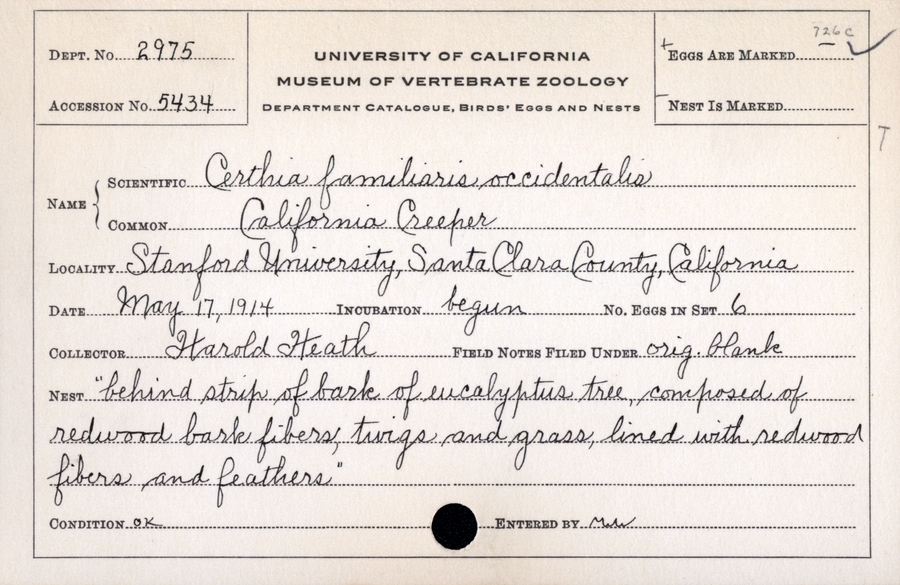 726c
DEPT. NO. 2975
UNIVERSITY OF CALIFORNIA
+ EGGS ARE MARKED
MUSEUM OF VERTEBRATE ZOOLOGY
ACCESSION NO. 5434
DEPARTMENT CATALOGUE, BIRDS' EGGS AND NESTS
— NEST IS MARKED
T
NAME { SCIENTIFIC Certhia familiaris occidentalis
COMMON California Creeper
LOCALITY Stanford University, Santa Clara County, California
DATE May 17, 1914 INCUBATION begun NO. EGGS IN SET 6
COLLECTOR Harold Heath FIELD NOTES FILED UNDER orig. blank
NEST "behind strip of bark of eucalyptus tree, composed of
redwood bark fibers, twigs and grass, lined with redwood
fibers and feathers"
CONDITION OK ENTERED BY